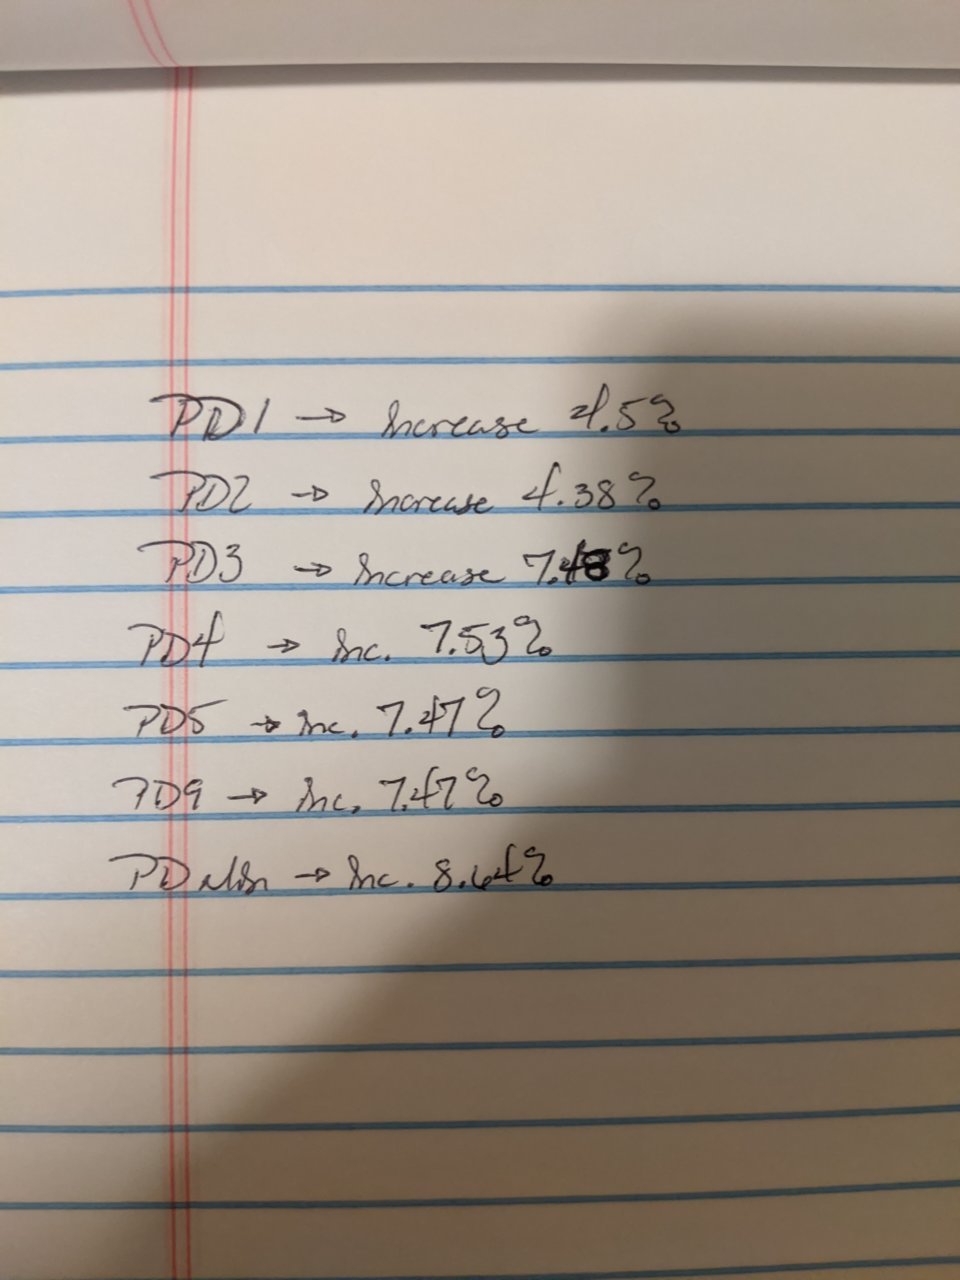 PD1 → Increase 4.5%
PD2 → Increase 4.38%
PD3 → Increase 7.48%
PD4 → Inc. 7.53%
PD5 → Inc. 7.47%
PD9 → Inc. 7.47%
PD Min → Inc. 8.64%